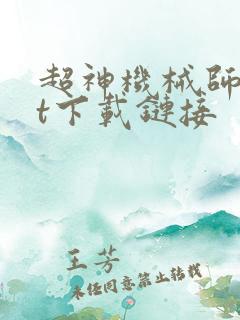 超神機械師
t下載鏈接
王芳
未經同意禁止轉載